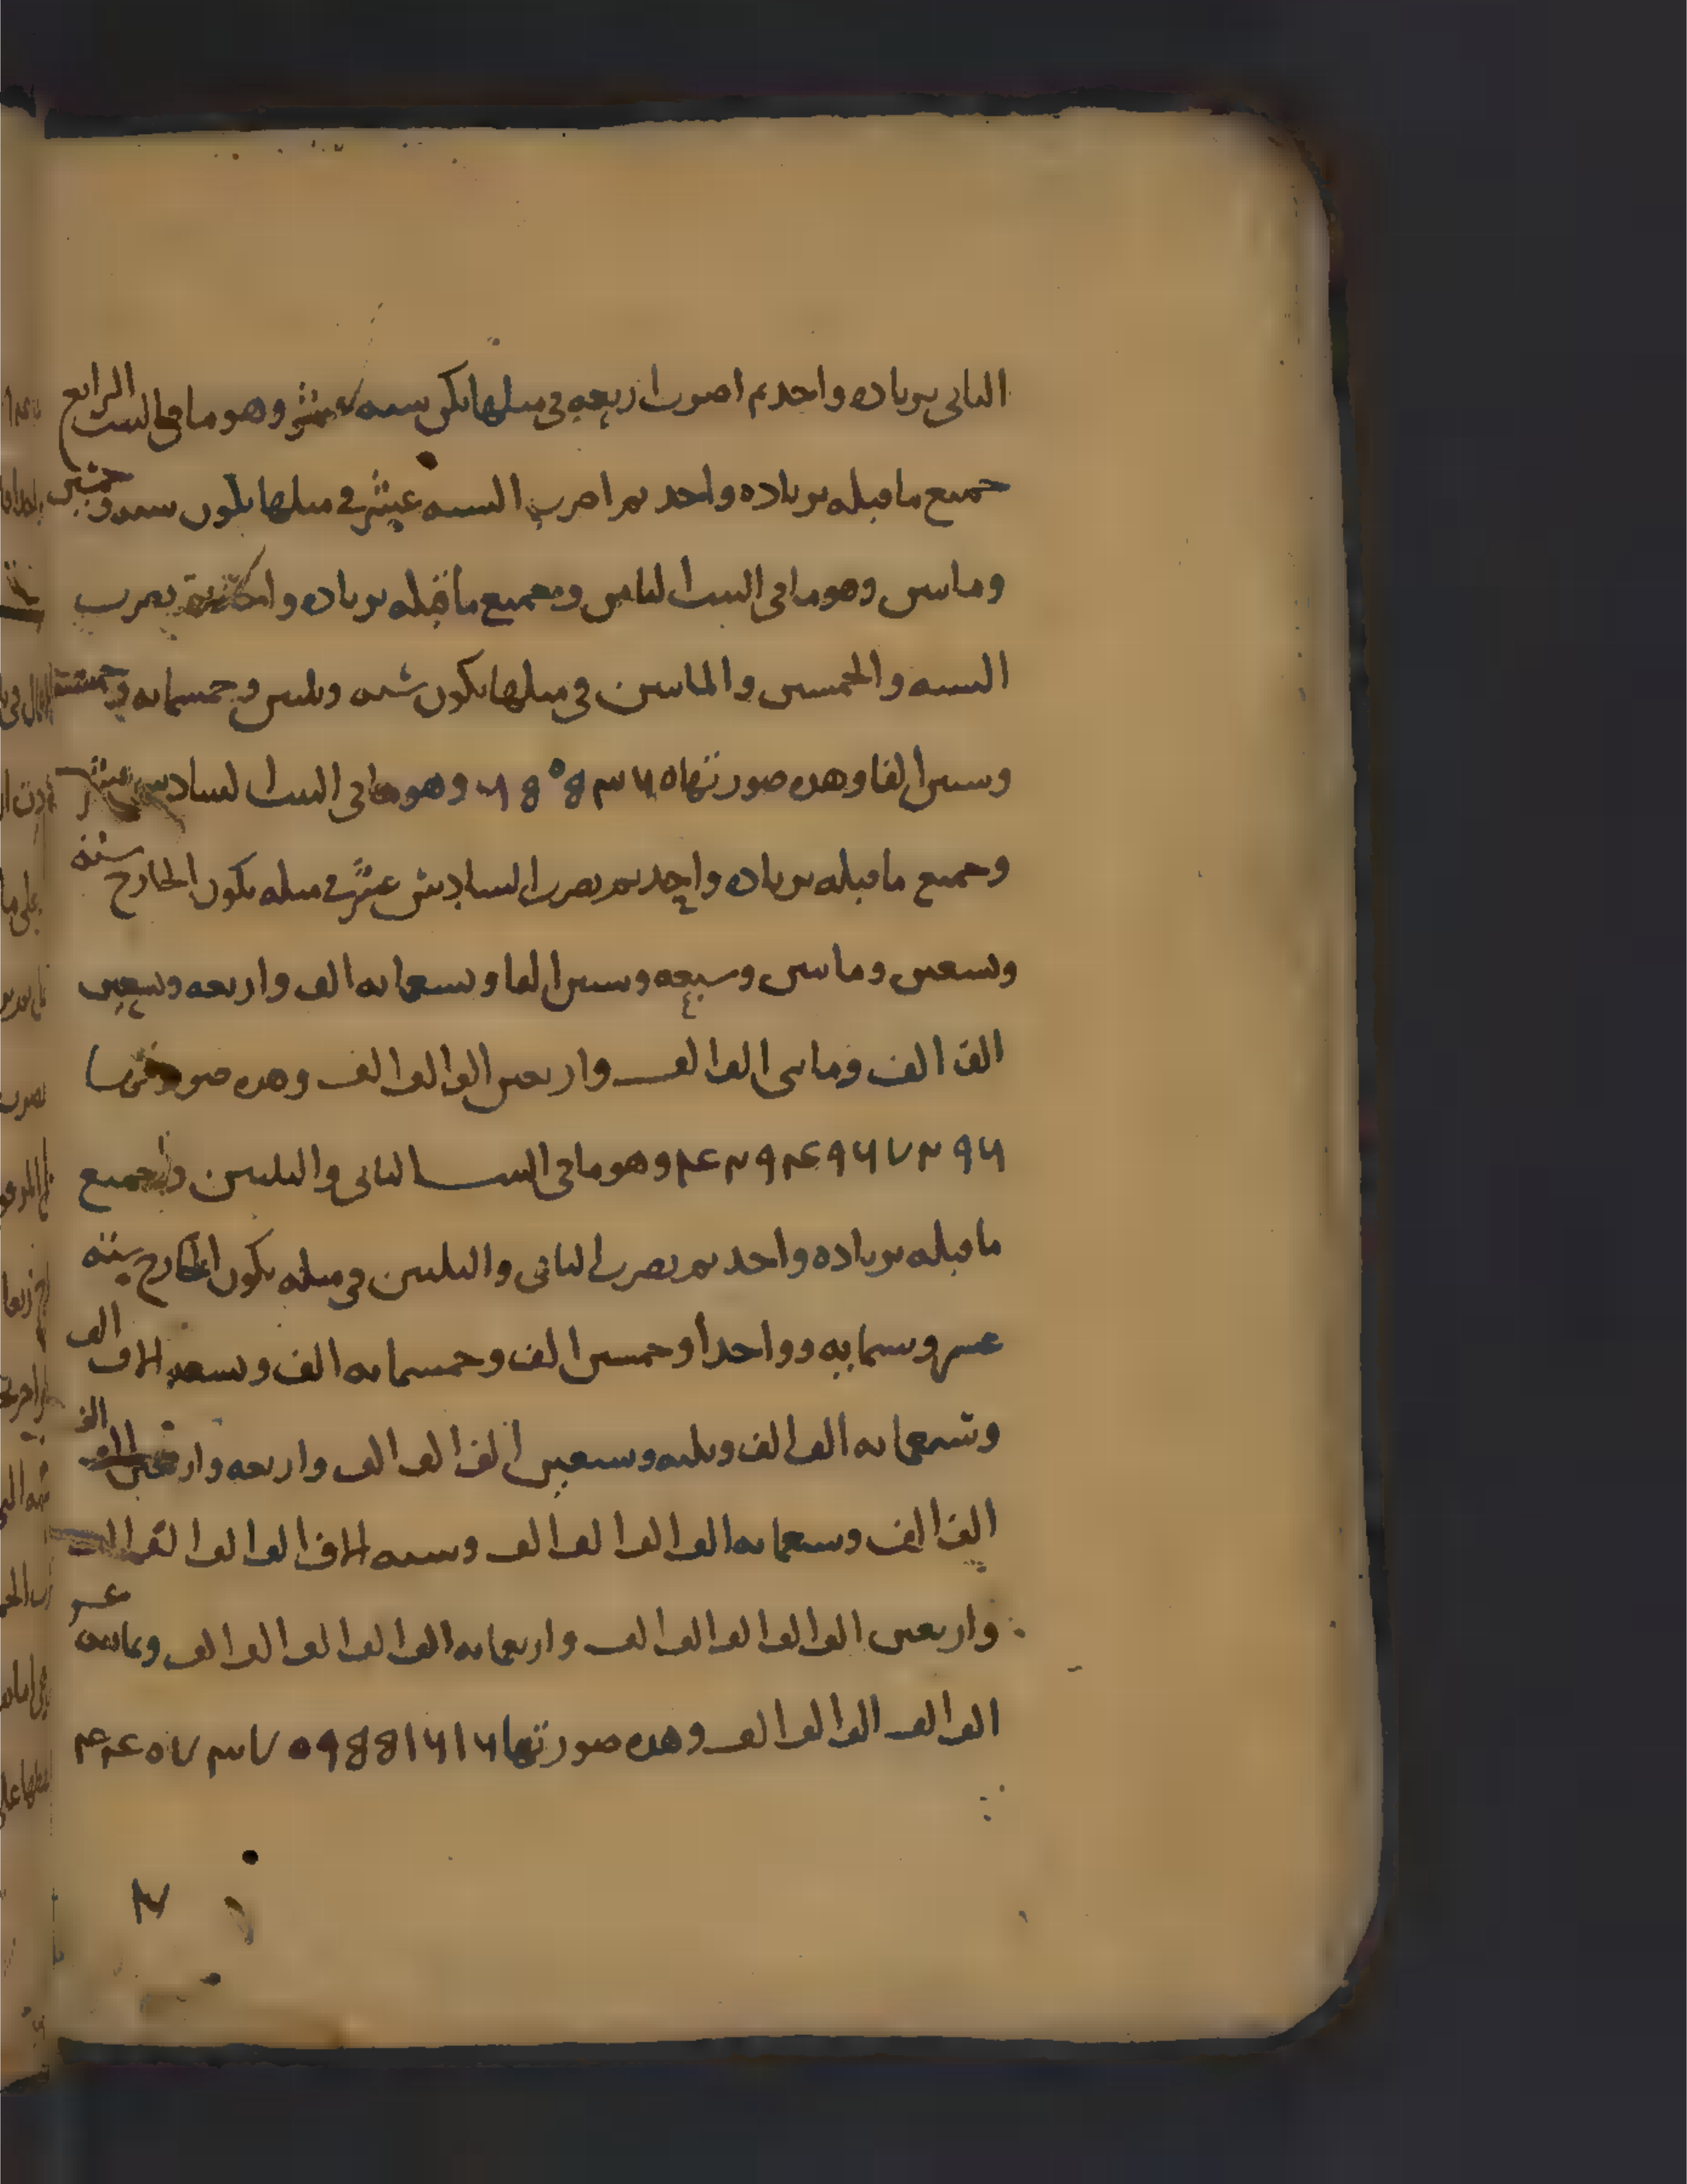 الثانى بزياده واحد ثم اضرب اربعه فى مثلها يكن سته عشر وهو ما فى البيت الرابع
جميع ما قبله بزياده واحد ثم اضرب السته عشر فى مثلها يكون سته وخمسين
وماتين وهو ما فى البيت الثامن وجميع ما قبله بزياده واحد ثم تضرب
السته والخمسين والماتين فى مثلها يكون سته وثلثين وخمسمايه وخمسه
وستين الفا وهذه صورتها ٦٥٥٣٦ وهو ما فى البيت السادس عشر
وجميع ما قبله بزياده واحد ثم يضرب السادس عشر فى مثله يكون الخارج سته
وتسعين وماتين وسبعه وستين الفا وتسعمايه الف واربعه وتسعين
الف الف وماتى الف الف واربعه الف الف الف وهذه صورتها
٤٢٩٤٩٦٧٢٩٦ وهو ما فى البيت الثانى والثلثين وجميع
ما قبله بزياده واحد ثم يضرب الثانى والثلثين فى مثله يكون الخارج سته
عشر وستمايه وواحدا وخمسين الف وخمسمايه الف وتسعه الاف الف
وسبعمايه الف الف وثلثه وسبعين الف الف الف واربعه واربعين الف
الف الف وسبعمايه الف الف الف الف وسته الاف الف الف الف الف
واربعين الف الف الف الف الف واربعمايه الف الف الف الف الف وثمانيه عشر
الف الف الف الف الف الف وهذه صورتها